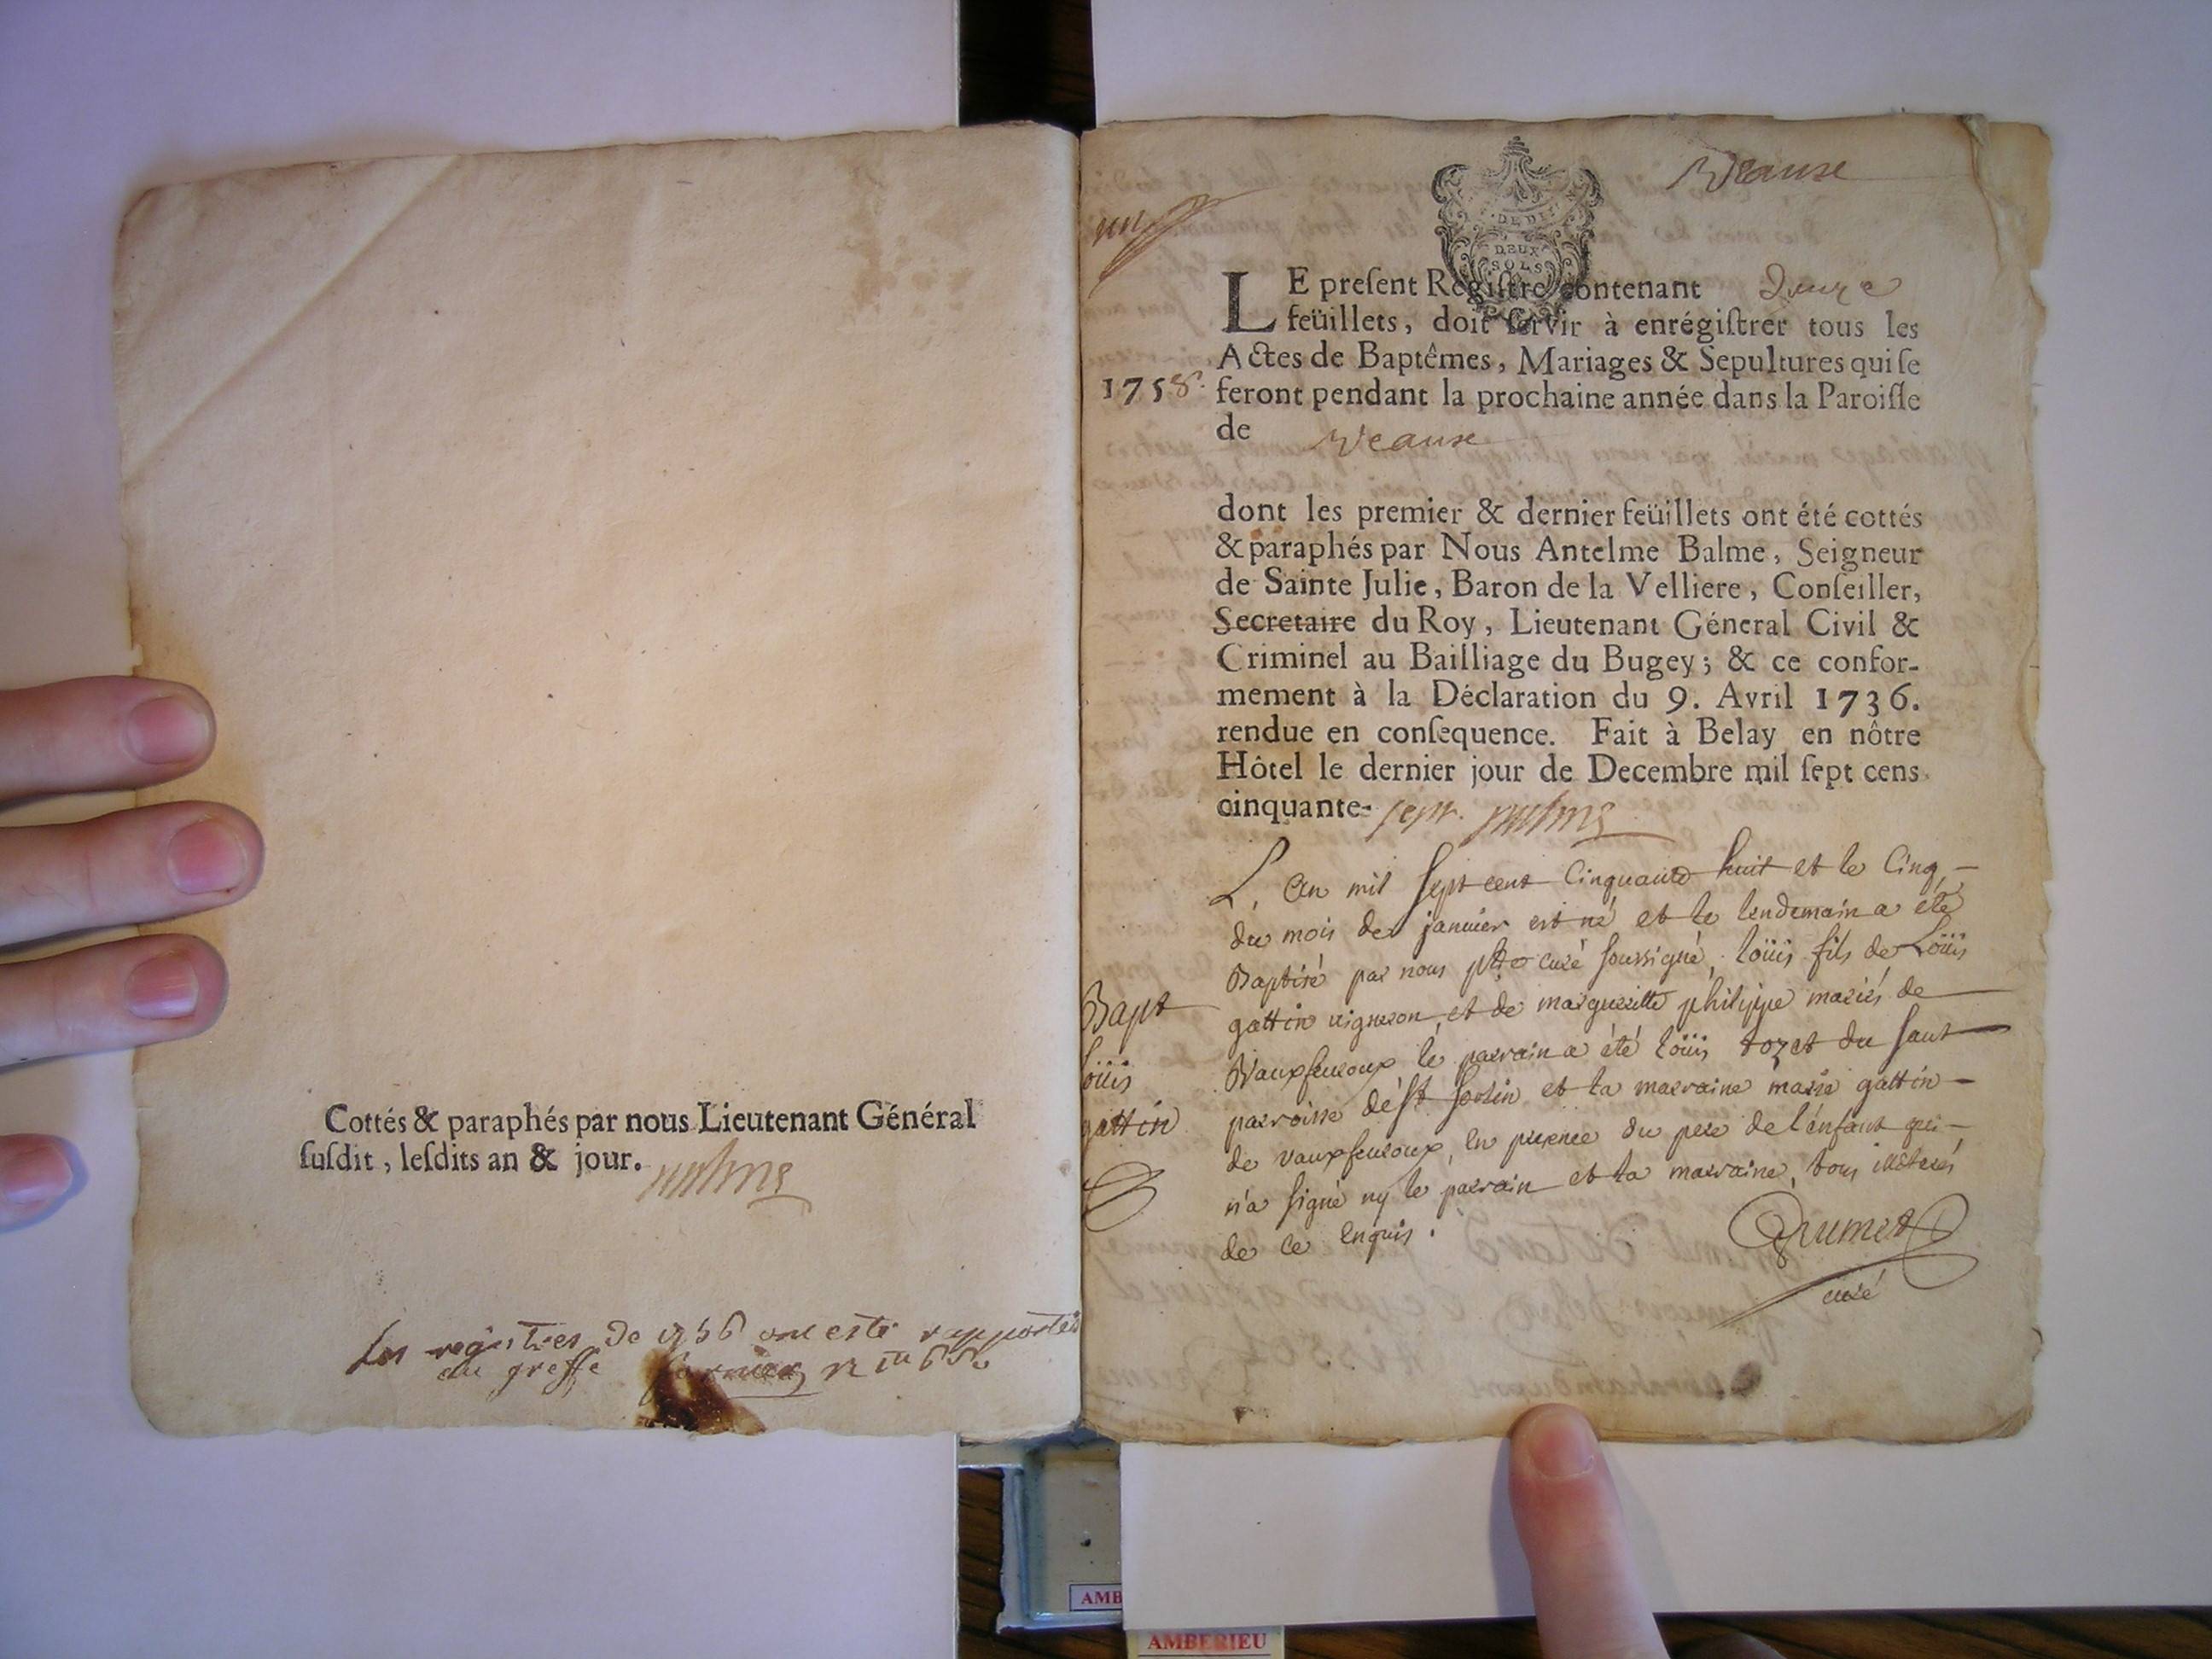 Cottés & paraphés par nous Lieutenant Général
ſuſdit, leſdits an & jour.
Les registres de 1756 ont esté rapportés
au greffe
un
Veaux
DEUX
SOLS
LE preſent Regiſtre contenant douze
feüillets, doit ſervir à enrégiſtrer tous les
Actes de Baptêmes, Mariages & Sepultures qui ſe
1758. feront pendant la prochaine année dans la Paroiſſe
de Veaux
dont les premier & dernier feüillets ont été cottés
& paraphés par Nous Antelme Balme, Seigneur
de Sainte Julie, Baron de la Velliere, Conſeiller,
Secretaire du Roy, Lieutenant Géneral Civil &
Criminel au Bailliage du Bugey; & ce confor-
mement à la Déclaration du 9. Avril 1736.
rendue en conſequence. Fait à Belay en nôtre
Hôtel le dernier jour de Decembre mil ſept cens
cinquante- sept.
L'an mil sept cent Cinquante huit et le Cinq
du mois de janvier est né et le lendemain a été
Baptisé par nous curé soussigné, loüis fils de Loüis
gattin vigneron et de marguerite philippe mariés de
Vauxfeuroux le parrain a été loüis tozet du saut
parroisse de st sorlin et la marraine marie gattin
de vauxfeuroux, en presence du pere de l'enfant qui
n'a signé ny le parrain et la marraine, tous illeterés
de ce enquis.
Bapt
loüis
gattin
Grumet
curé
AMB
AMBERIEU